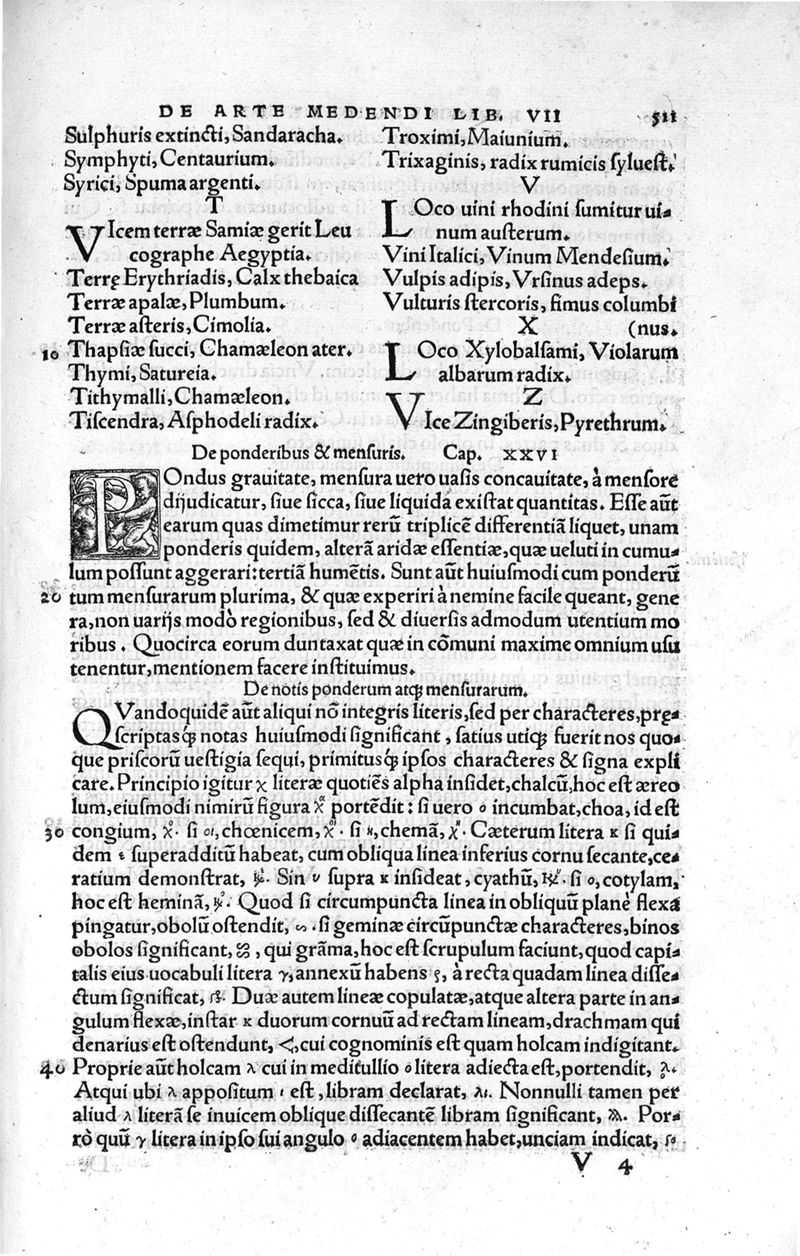 DE ARTE MEDENDI LIB. VII 511
Sulphuris extincti, Sandaracha.
Symphyti, Centaurium.
Syrici, Spuma argenti.
T
VIcem terræ Samiæ gerit Leu
cographe Aegyptia.
Terrę Erythriadis, Calx thebaica
Terræ apalæ, Plumbum.
Terræ asteris, Cimolia.
10 Thapsiæ succi, Chamæleon ater.
Thymi, Satureia.
Tithymalli, Chamæleon.
Tiscendra, Asphodeli radix.
Troximi, Maiunium.
Trixaginis, radix rumicis syluest.
V
LOco uini rhodini sumitur ui-
num austerum.
Vini Italici, Vinum Mendesium.
Vulpis adipis, Vrsinus adeps.
Vulturis stercoris, fimus columbi
X (nus.
LOco Xylobalsami, Violarum
albarum radix.
Z
VIce Zingiberis, Pyrethrum.
De ponderibus & mensuris. Cap. XXVI
POndus grauitate, mensura uero uasis concauitate, à mensore
dijudicatur, siue sicca, siue liquida existat quantitas. Esse aūt
earum quas dimetimur rerū triplicē differentiā liquet, unam
ponderis quidem, alterā aridæ essentiæ, quæ ueluti in cumu-
lum possunt aggerari: tertiā humētis. Sunt aūt huiusmodi cum ponderū
20 tum mensurarum plurima, & quæ experiri à nemine facile queant, gene
ra, non uarijs modò regionibus, sed & diuersis admodum utentium mo
ribus. Quocirca eorum duntaxat quæ in cōmuni maxime omnium usu
tenentur, mentionem facere instituimus.
De notis ponderum atq; mensurarum.
QVandoquidē aūt aliqui nō integris literis, sed per characteres, prę-
scriptasq; notas huiusmodi significant, satius utiq; fuerit nos quo-
que priscorū uestigia sequi, primitusq; ipsos characteres & signa expli
care. Principio igitur χ literæ quotiēs alpha insidet, chalcū, hoc est æreo
lum, eiusmodi nimirū figura χͣ portēdit: si uero ο incumbat, choa, id est
30 congium, χͦ. si οι, chœnicem, χͦͥ. si η, chemā, χη. Cæterum litera κ si qui-
dem ε superadditū habeat, cum obliqua linea inferius cornu secante, ce-
ratium demonstrat, Sin υ supra κ insideat, cyathū, si ο, cotylam,
hoc est heminā, Quod si circumpuncta linea in obliquū planè flexa
pingatur, obolū ostendit, si geminæ circūpunctæ characteres, binos
obolos significant, qui grāma, hoc est scrupulum faciunt, quod capi-
talis eius uocabuli litera γ, annexū habens ς, à recta quadam linea disse-
ctum significat, Duæ autem lineæ copulatæ, atque altera parte in an-
gulum flexæ, instar κ duorum cornuū ad rectam lineam, drachmam qui
denarius est ostendunt, <, cui cognominis est quam holcam indigitant.
40 Proprie aūt holcam λ cui in meditullio ο litera adiecta est, portendit,
Atqui ubi λ appositum ι est, libram declarat, λι. Nonnulli tamen per
aliud λ literā se inuicem oblique dissecantē libram significant, Por-
rò quū γ litera in ipso sui angulo ο adiacentem habet, unciam indicat,
V 4